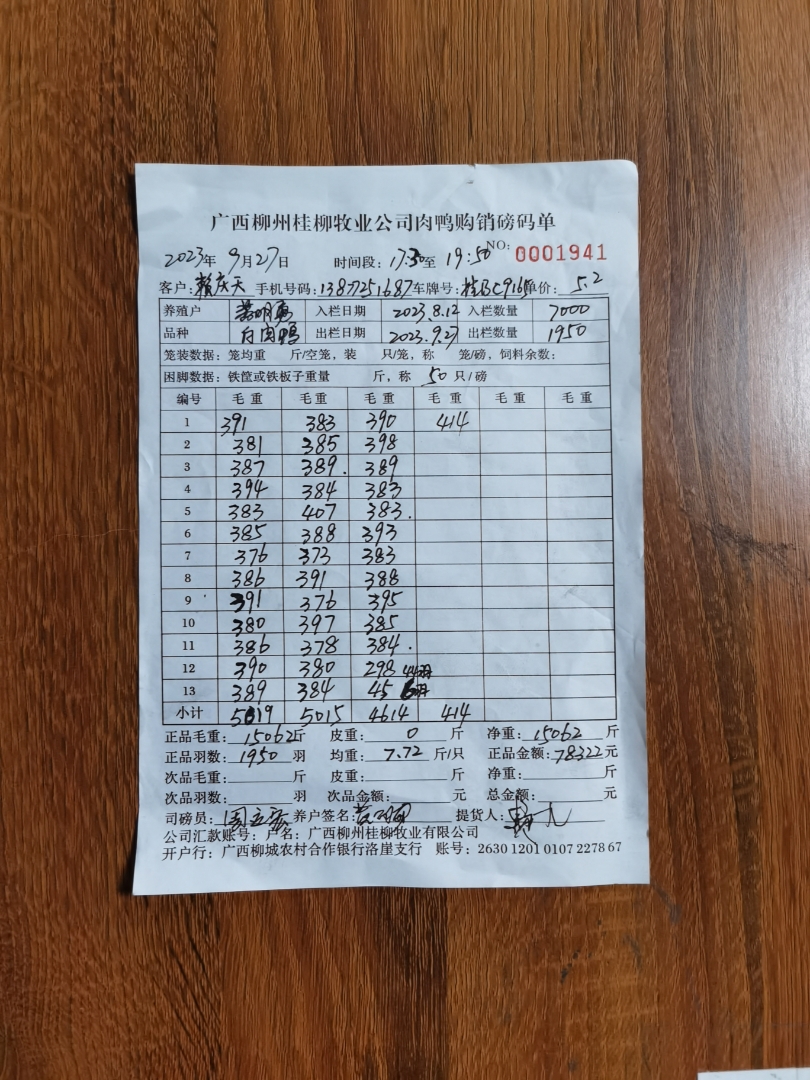 广西柳州桂柳牧业公司肉鸭购销磅码单
2023年 9月27日 时间段: 17:30至 19:50 NO: 0001941
客户: 赖庆天 手机号码: 1387751687 车牌号: 单价: 5.2
养殖户 入栏日期 2023.8.12 入栏数量 7000
品种 白肉鸭 出栏日期 2023.9.27 出栏数量 1950
笼装数据: 笼均重 斤/空笼, 装 只/笼, 称 笼/磅, 饲料余数:
困脚数据: 铁筐或铁板子重量 斤, 称 50 只/磅
编号 毛重 毛重 毛重 毛重 毛重 毛重
1 391 383 390 414
2 381 385 398
3 387 389. 389
4 394 384 383
5 383 407 383.
6 385 388 393
7 376 373 383
8 386 391 388
9 391 376 395
10 380 397 385
11 386 378 384.
12 390 380 298 44羽
13 389 384 45 6羽
小计 5019 5015 4614 414
正品毛重: 15062斤 皮重: 0 斤 净重: 15062 斤
正品羽数: 1950 羽 均重: 7.72 斤/只 正品金额: 78322元
次品毛重: 斤 皮重: 斤 净重: 斤
次品羽数: 羽 次品金额: 元 总金额: 元
司磅员: 养户签名: 提货人:
公司汇款账号: 户名: 广西柳州桂柳牧业有限公司
开户行: 广西柳城农村合作银行洛崖支行 账号: 2630 1201 0107 2278 67